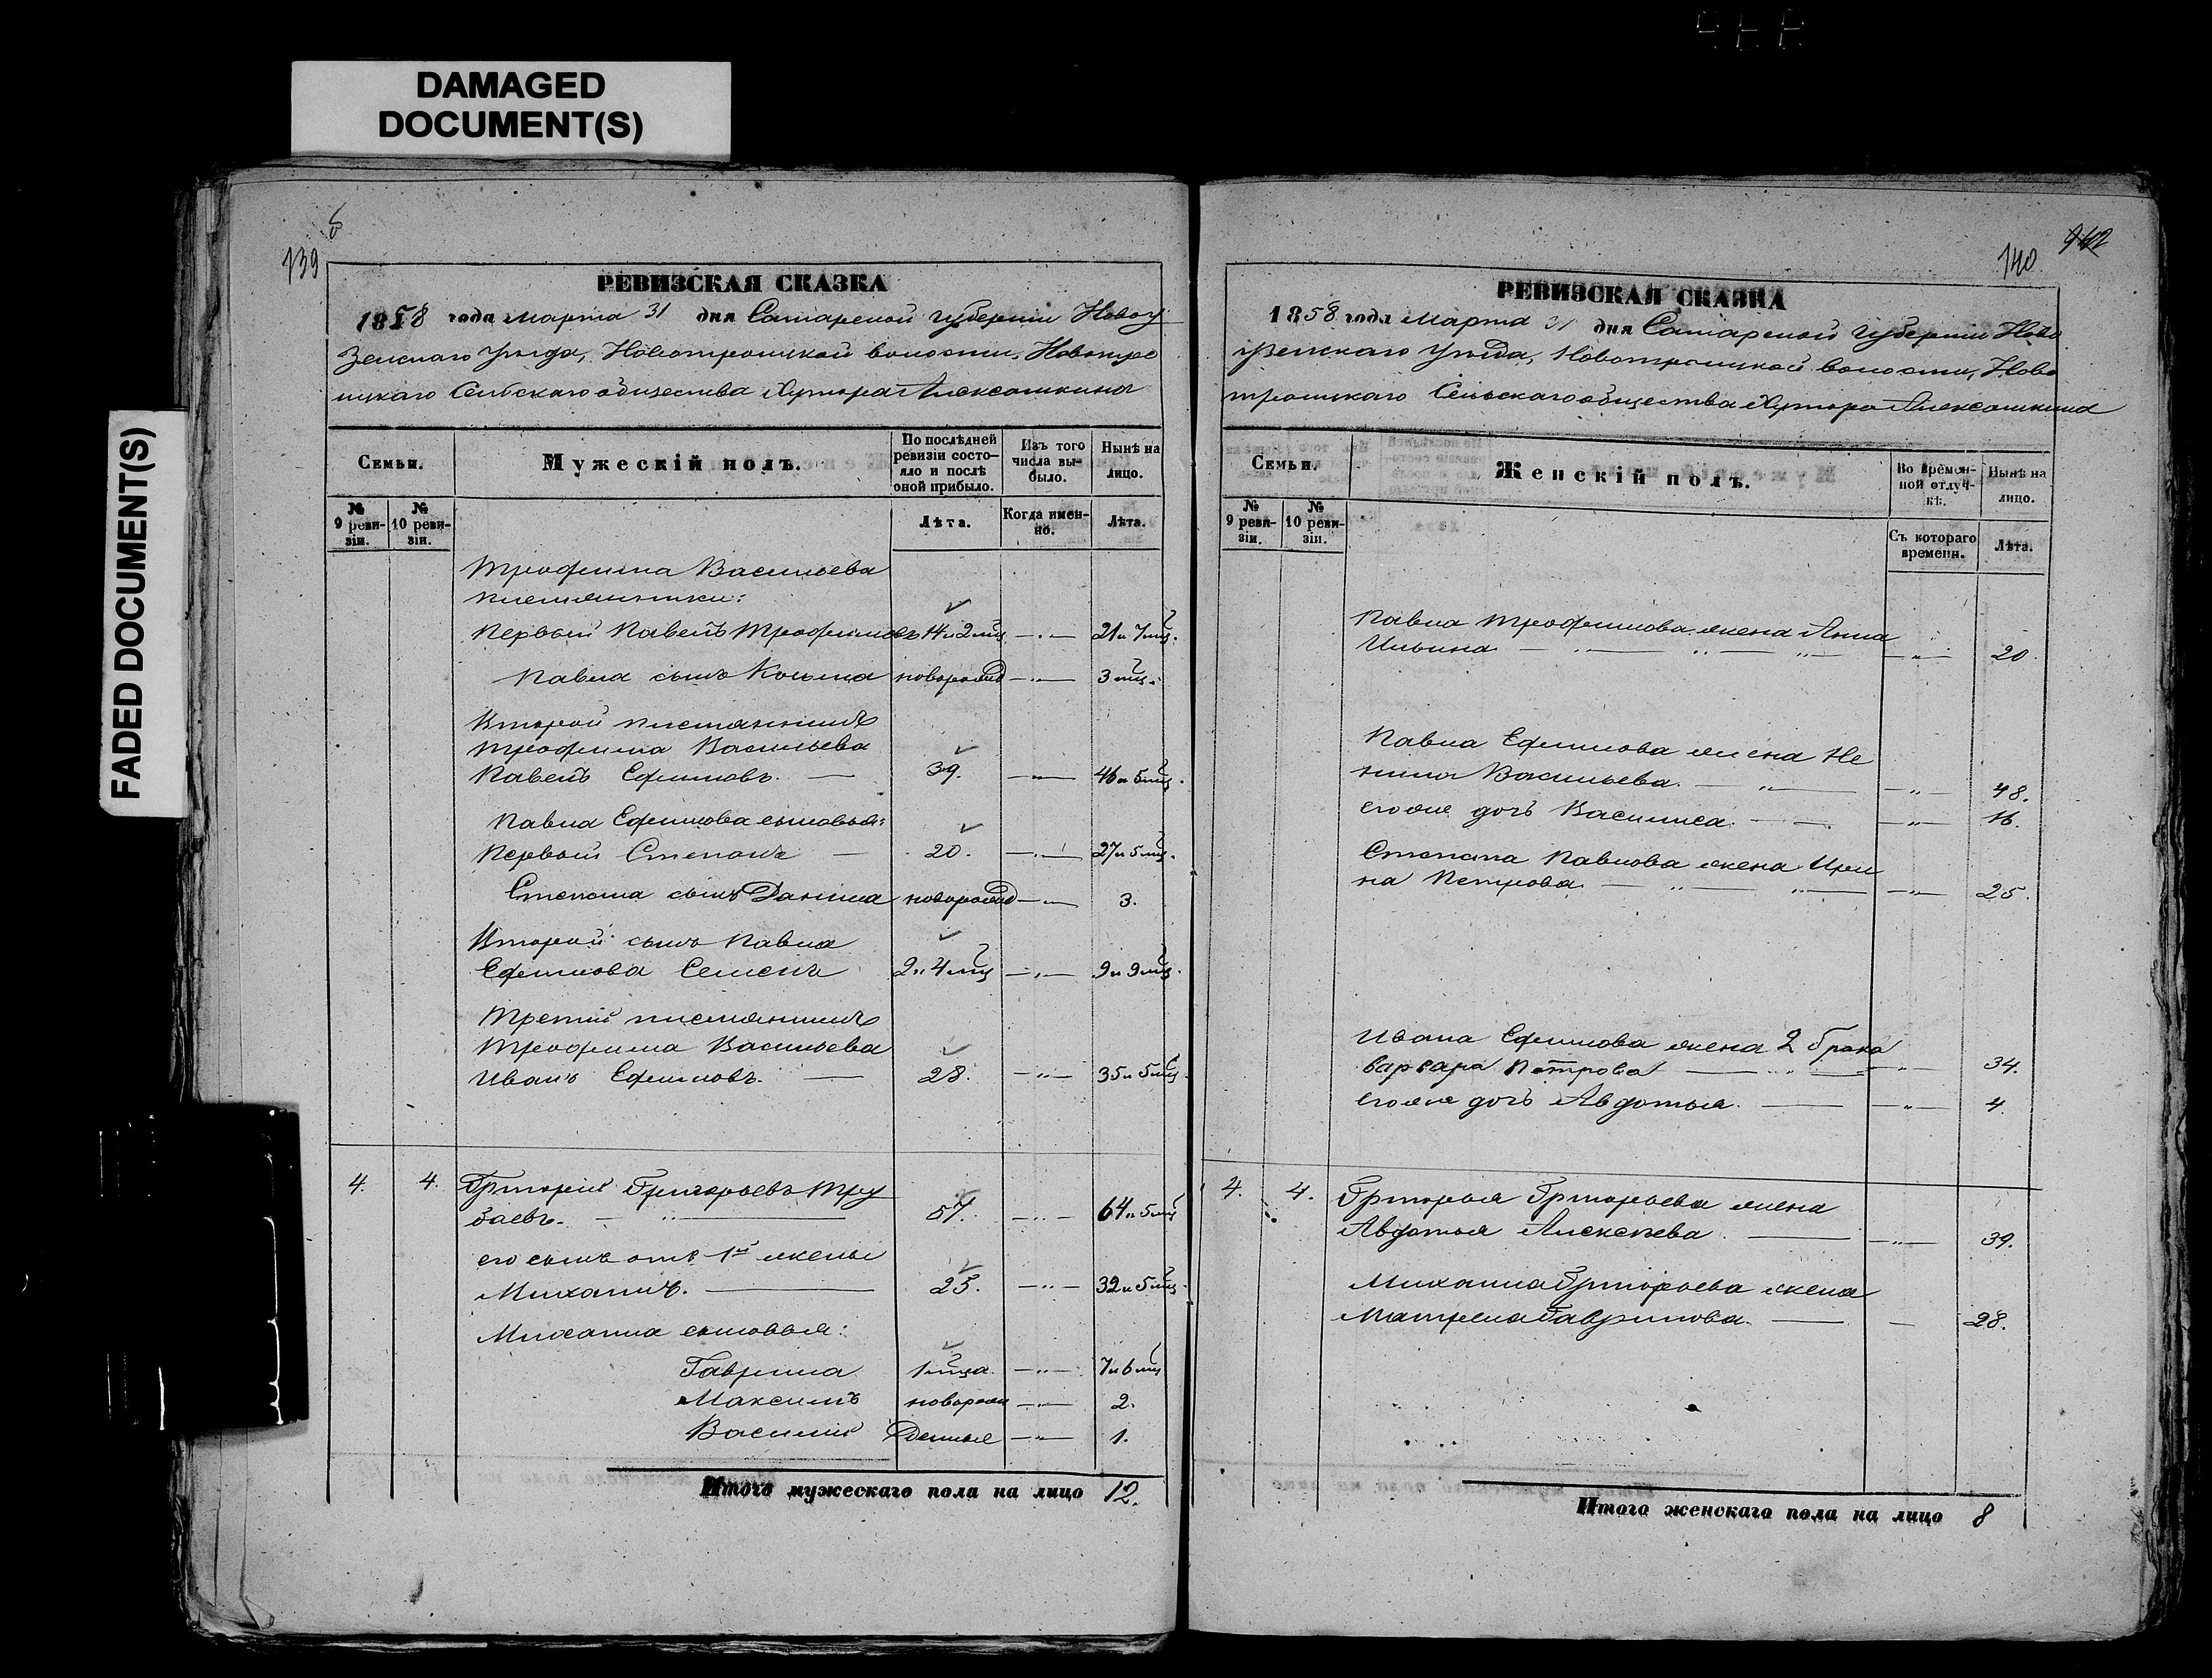 DAMAGED
DOCUMENT(S)
FADED DOCUMENT(S)
139
РЕВИЗСКАЯ СКАЗКА
1858 года Марта 31 дня Самарской губерніи Новоу
зенскаго Уѣзда, Новотроицкой волости, Новотро
ицкаго Сельскаго общества Хутора Алексашкина
Семьи.
Мужескій полъ.
По послѣдней ревизіи состо-яло и послѣ оной прибыло.
Изъ того числа вы-было.
Нынѣ на лицо.
№ 9 реви-зіи.
№ 10 реви-зіи.
Лѣта.
Когда имен-но.
Лѣта.
Трофима Васильева
племянники:
Первый Павелъ Трофимовъ 14 и 2 мц 21 и 7 мц.
Павла сынъ Козьма новорожд 3 мц.
Второй племянникъ
Трофима Васильева
Павелъ Ефимовъ. 39. 46 и 5 мц.
Павла Ефимова сыновья:
Первый Степанъ 20. 27 и 5 мц.
Степана сынъ Данила новорожд 3.
Второй сынъ Павла
Ефимова Семенъ 2 и 4 мц 9 и 9 мц.
Третій племянникъ
Трофима Васильева
Иванъ Ефимовъ. 28. 35 и 5 мц.
4. 4. Григорій Григорьевъ Тру
баевъ. 57. 64 и 5 мц
его сынъ отъ 1й жены
Михаилъ. 25. 32 и 5 мц.
Михаила сыновья:
Гаврила 1 мца. 7 и 6 мц
Максимъ новорож 2.
Василій денные 1.
Итого мужескаго пола на лицо 12.
140
РЕВИЗСКАЯ СКАЗКА
1858 года Марта 31 дня Самарской губерніи Ново
узенскаго Уѣзда, Новотроицкой волости, Ново
троицкаго Сельскаго общества Хутора Алексашкина
Семьи.
Женскій полъ.
Во времен-ной отлуч-кѣ.
Нынѣ на лицо.
№ 9 реви-зіи.
№ 10 реви-зіи.
Съ котораго времени.
Лѣта.
Павла Трофимова жена Анна
Ильина 20.
Павла Ефимова жена Не
нила Васильева. 48.
его же дочь Василиса. 16.
Степана Павлова жена Ири
на Петрова. 25.
Ивана Ефимова жена 2 брака
Варвара Петрова 34.
его же дочь Авдотья. 4.
4. 4. Григорья Григорьева жена
Авдотья Алексѣева. 39.
Михаила Григорьева жена
Матрена Гаврилова. 28.
Итого женскаго пола на лицо 8